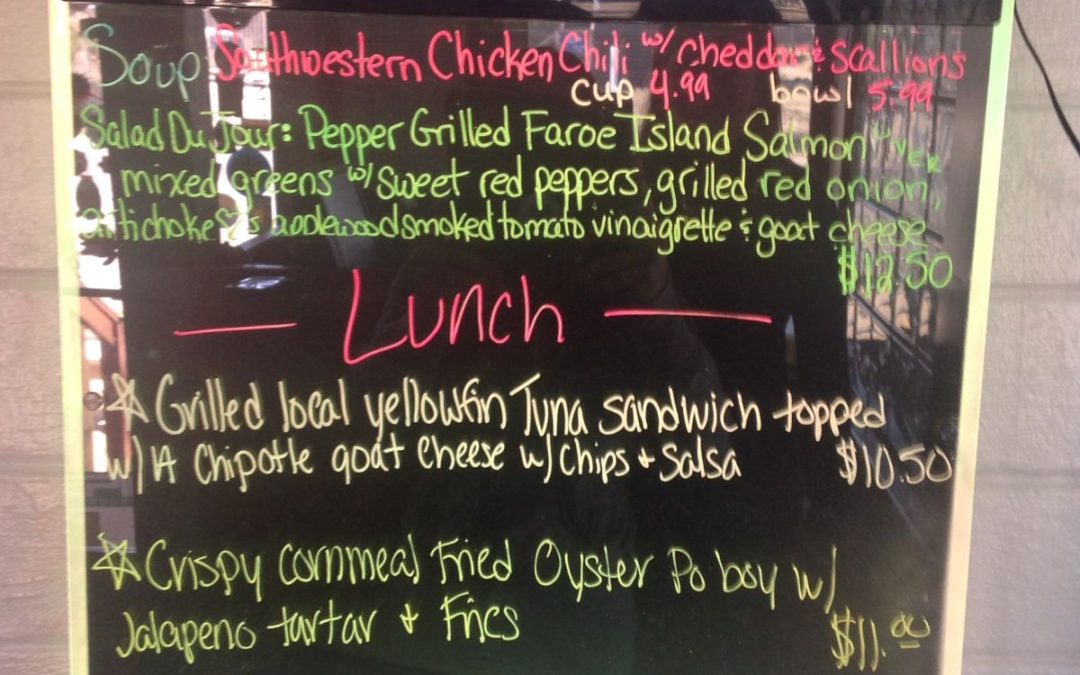 Soup Southwestern Chicken Chili w/ cheddar & scallions
cup 4.99 bowl 5.99
Salad Du Jour: Pepper Grilled Faroe Island Salmon over
mixed greens w/ sweet red peppers, grilled red onion,
artichoke applewood smoked tomato vinaigrette & goat cheese
$12.50
Lunch
Grilled local yellowfin Tuna sandwich topped
w/ A Chipotle goat cheese w/ chips + salsa $10.50
Crispy cornmeal Fried Oyster Po boy w/
Jalapeno tartar + Fries $11.00